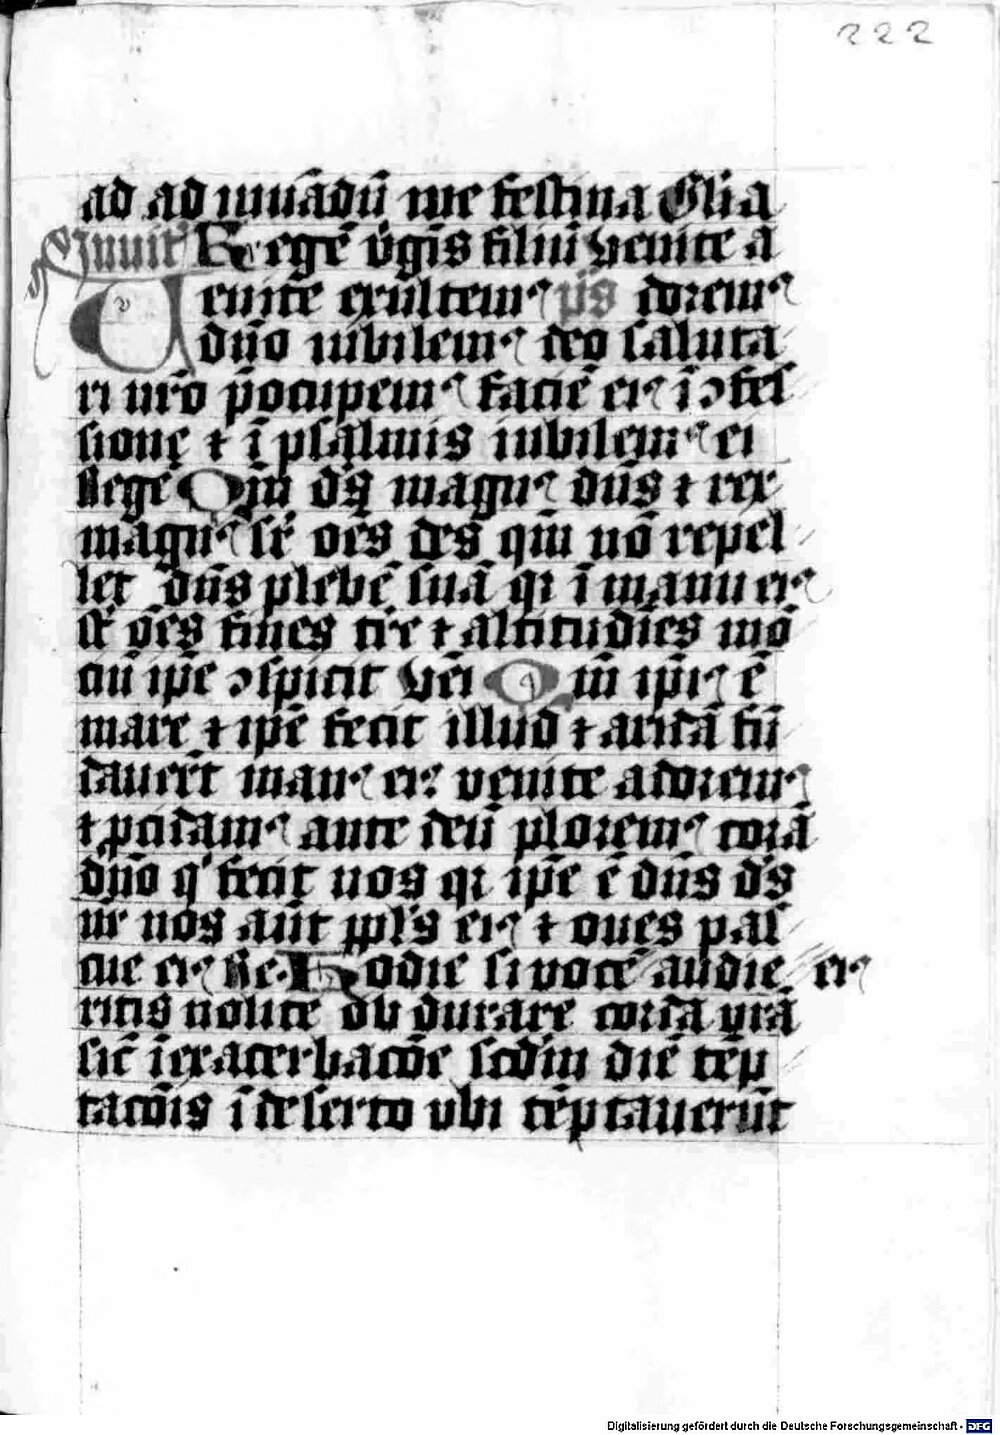 222
ad ad iuuādū me festina Gl̄ia
Inuit᷒ Regē v̄gīs filiū venite a
Uenite exultem᷒ ps̄ dorem᷒
dn̄o iubilem᷒ deo saluta
ri nr̄o p̄ocupem᷒ faciē ei᷒ ī ɔfes
sione ⁊ ī psalmis iubilem᷒ ei
Regē Qm̄ ds̄ magn᷒ dn̄s ⁊ rex
magn᷒ sr̄ oēs deos qm̄ nō repel
let dn̄s plebē suā qi ī manu ei᷒
st̄ oēs fines tr̄e ⁊ altitudīes mō
ciū ip̄e ɔspicit Ven̄i Qm̄ ip̄i᷒ ē
mare ⁊ ip̄e fecit illud ⁊ aridā fū
dauer̄t man᷒ ei᷒ venite adorem᷒
⁊ p̄cidam᷒ ante deū plorem᷒ corā
dn̄o q' fecit nos qi ip̄e ē dn̄s ds̄
nr̄ nos aūt ppl̄s ei᷒ ⁊ oues pas
cue ei᷒ Re. Hodie si vocē audie ei᷒
ritis nolite ob durare corda vr̄a
sic̄ ī exacerbacōe scdm̄ diē tēp
tacōis ī deserto vbi tēptauerūt
Digitalisierung gefördert durch die Deutsche Forschungsgemeinschaft - DFG